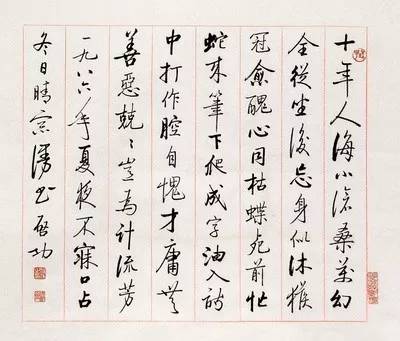 十年人海小滄桑萬幻
全從坐後忘身似沐猴
冠愈醜心同枯蝶死前忙
蛇來筆下爬成字油入詩
中打作腔自愧才庸無
善惡兢〻豈為計流芳
一九八六年夏夜不寐口占
冬日晴窗漫書 啟功